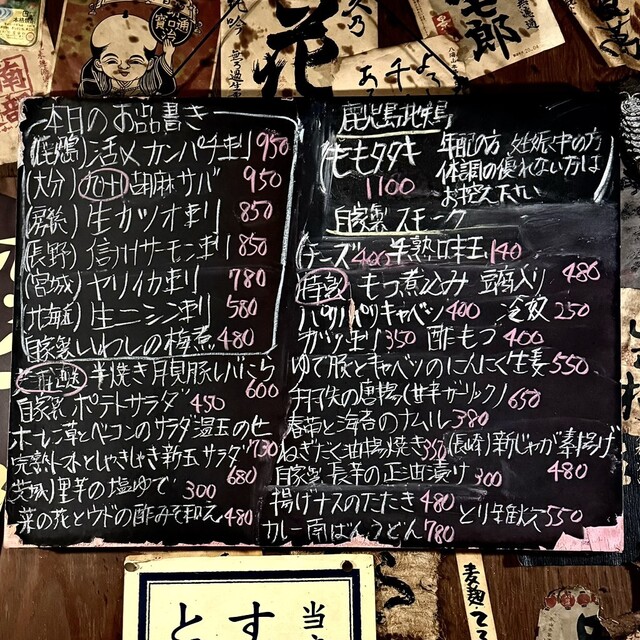 本日のお品書き
(鹿児島)活〆カンパチ刺 950
(大分)九州胡麻サバ 950
生カツオ刺 850
(長野)信州サーモン刺 850
(宮城)ヤリイカ刺 780
(北海道)生ニシン刺 580
自家製いわしの梅煮 480
半焼き月見豚レバにら 600
自家製ポテトサラダ 450
ホーレン草とベーコンのサラダ温玉のせ 730
完熟トマトとしゃきしゃき新玉サラダ 680
(茨城)里芋の塩ゆで 300
菜の花とウドの酢みそ和え 480
鹿児島地鶏
ももタタキ 1100
年配の方、妊娠中の方
体調の優れない方は
お控え下さい
自家製スモーク
(チーズ400 半熟味玉140
特製 もつ煮込み 豆腐入り 480
パリパリキャベツ 400 冷奴 250
ガツ刺 350 酢もつ 400
ゆで豚とキャベツのにんにく生姜 550
の唐揚(甘辛ガーリック) 650
春雨と海苔のナムル 380
ねぎだく油揚焼き 350 (長崎)新じゃが素揚げ 480
自家製 長芋の正油漬け 300
揚げナスのたたき 480 とり雑炊 550
カレー南ばんうどん 780
当
す
と
麦麹
南部
花
郎